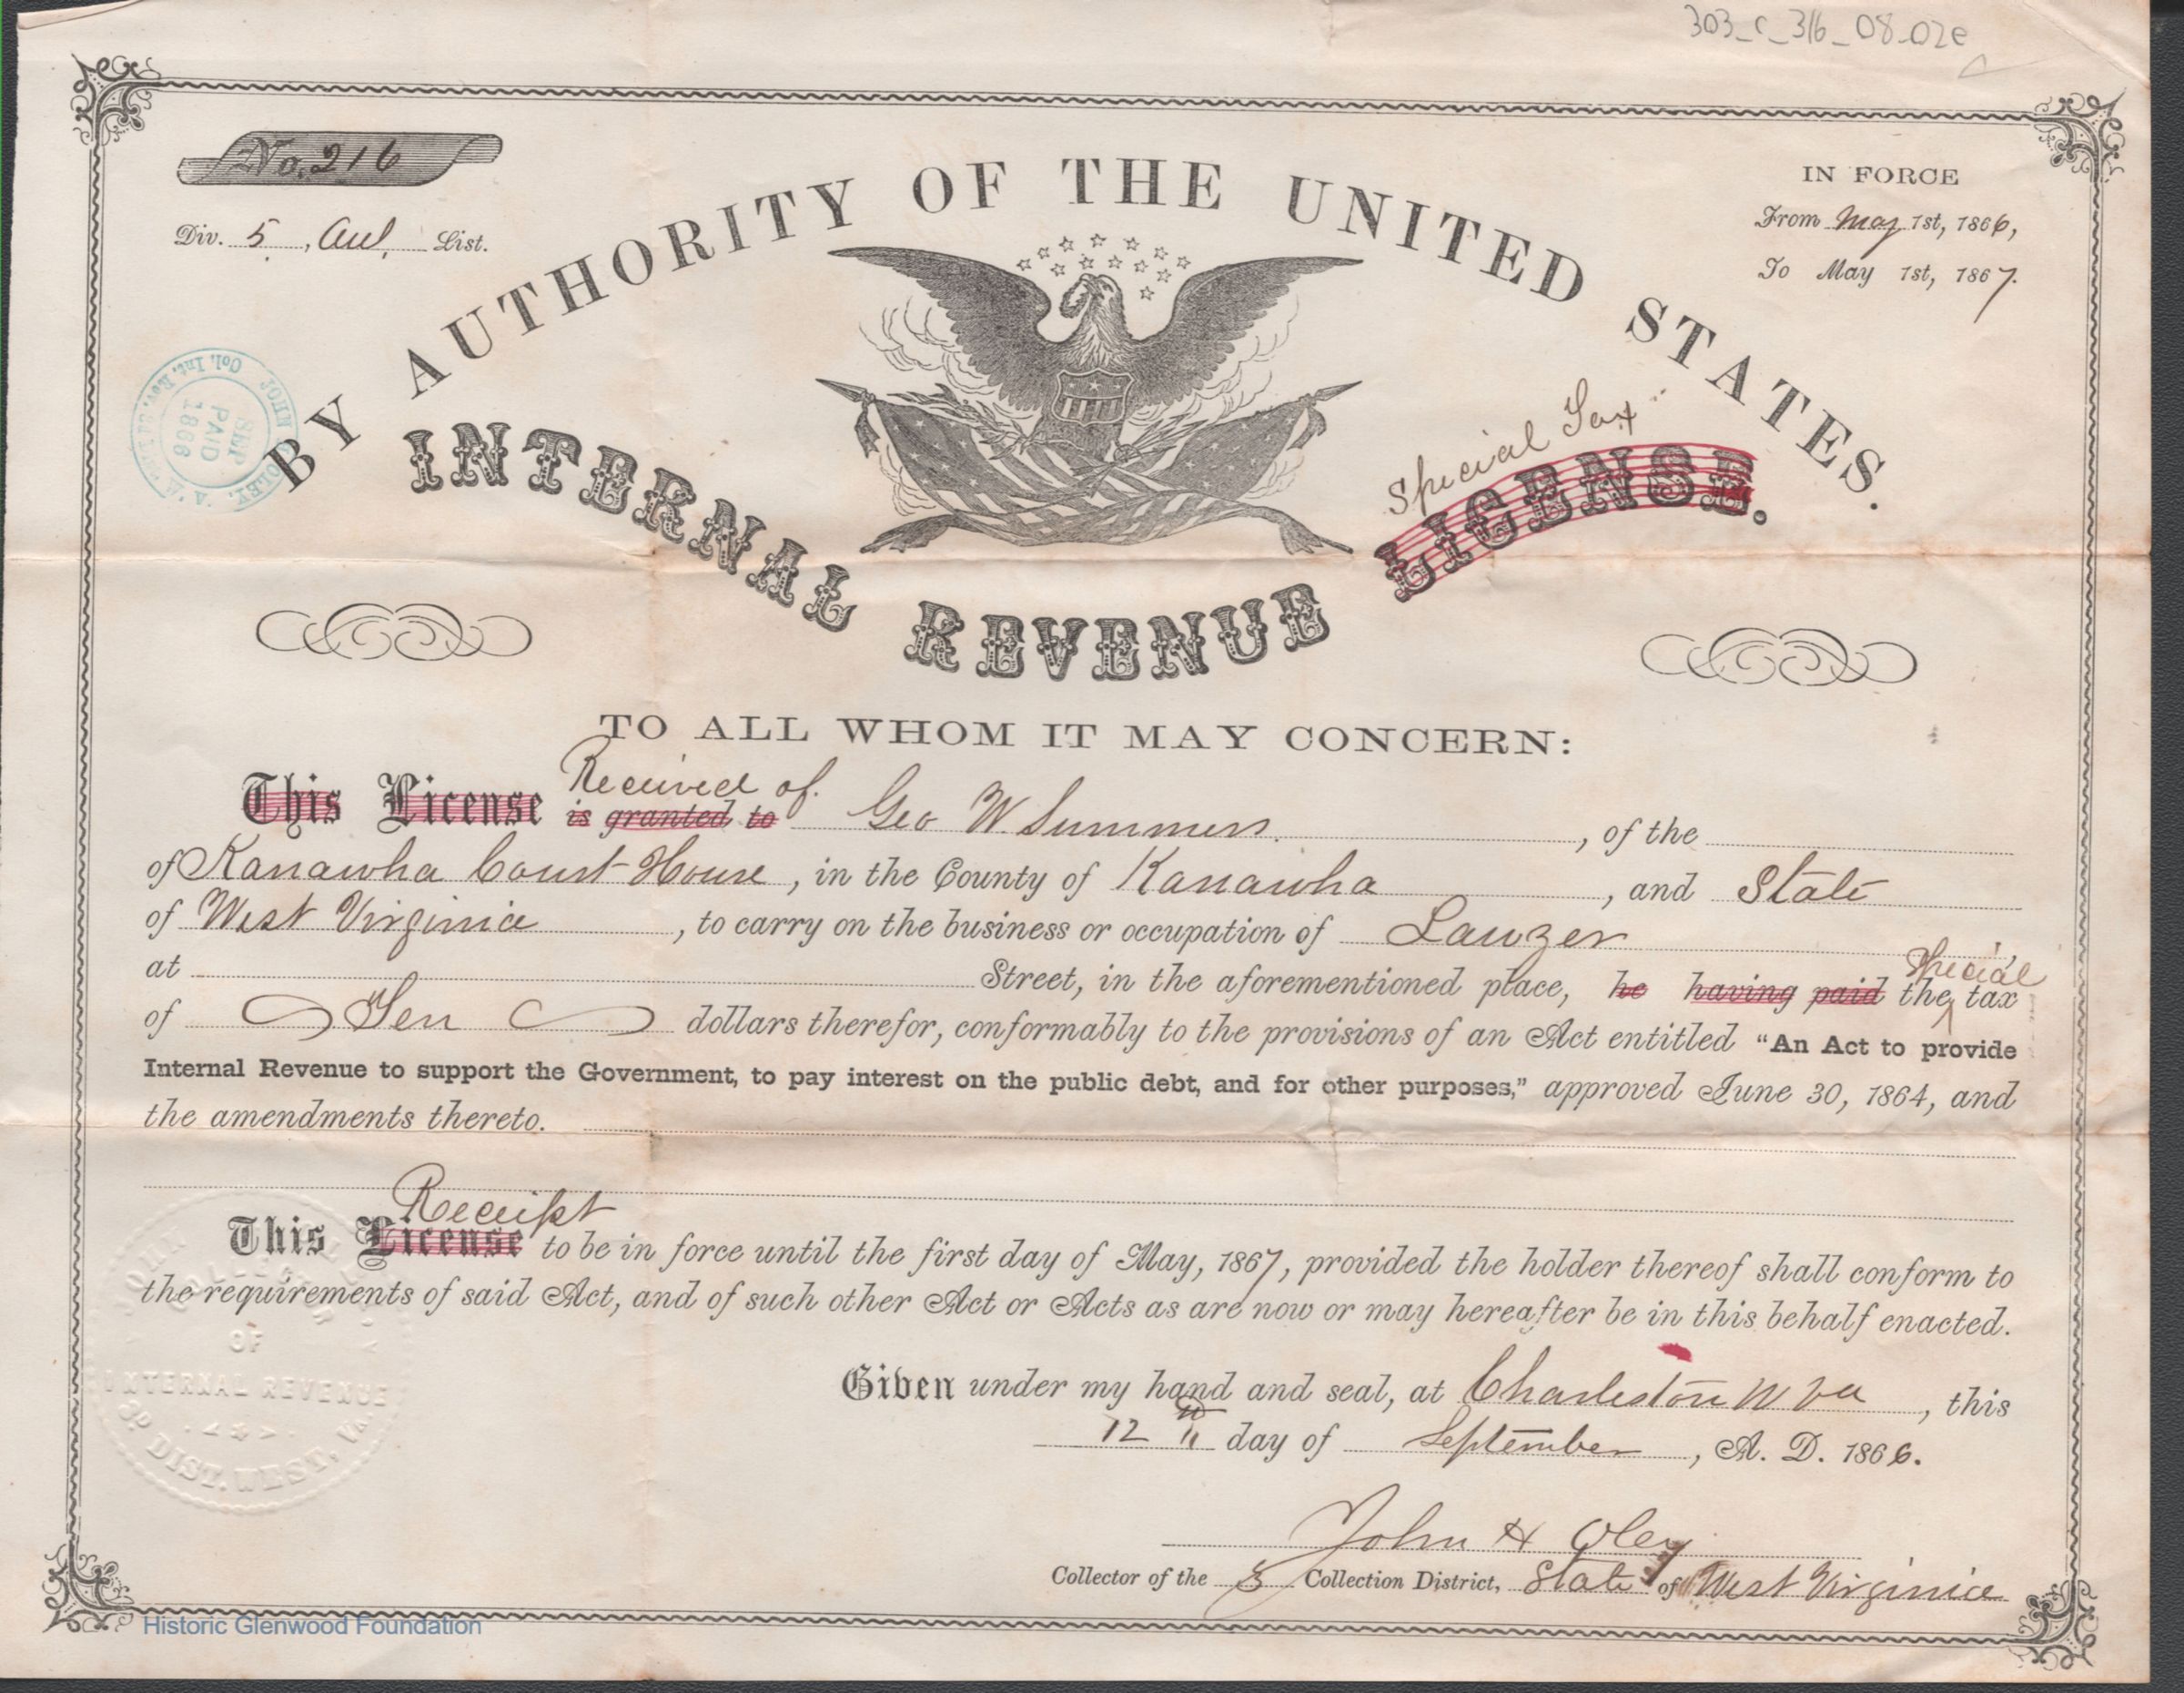 303_c_316_08_02e
No. 216
Div. 5, Aul, List.
IN FORCE
From May 1st, 1866,
To May 1st, 1867.
BY AUTHORITY OF THE UNITED STATES.
JOHN OLEY,
Col. Int. Rev.
SEP
PAID
1866
Special Tax
INTERNAL REVENUE LICENSE.
TO ALL WHOM IT MAY CONCERN:
Received of
This License is granted to Geo W. Summers, of the
of Kanawha Court House, in the County of Kanawha, and State
of West Virginia, to carry on the business or occupation of Lawzer
Special
at Street, in the aforementioned place, he having paid the tax
of Ten dollars therefor, conformably to the provisions of an Act entitled "An Act to provide
Internal Revenue to support the Government, to pay interest on the public debt, and for other purposes," approved June 30, 1864, and
the amendments thereto.
Receipt
This License to be in force until the first day of May, 1867, provided the holder thereof shall conform to
the requirements of said Act, and of such other Act or Acts as are now or may hereafter be in this behalf enacted.
OF
INTERNAL REVENUE
3D DIST. WEST. VA.
Given under my hand and seal, at Charleston W Va, this
12 th day of September, A. D. 1866.
John H Oley
Collector of the 3 Collection District, State of West Virginia
Historic Glenwood Foundation